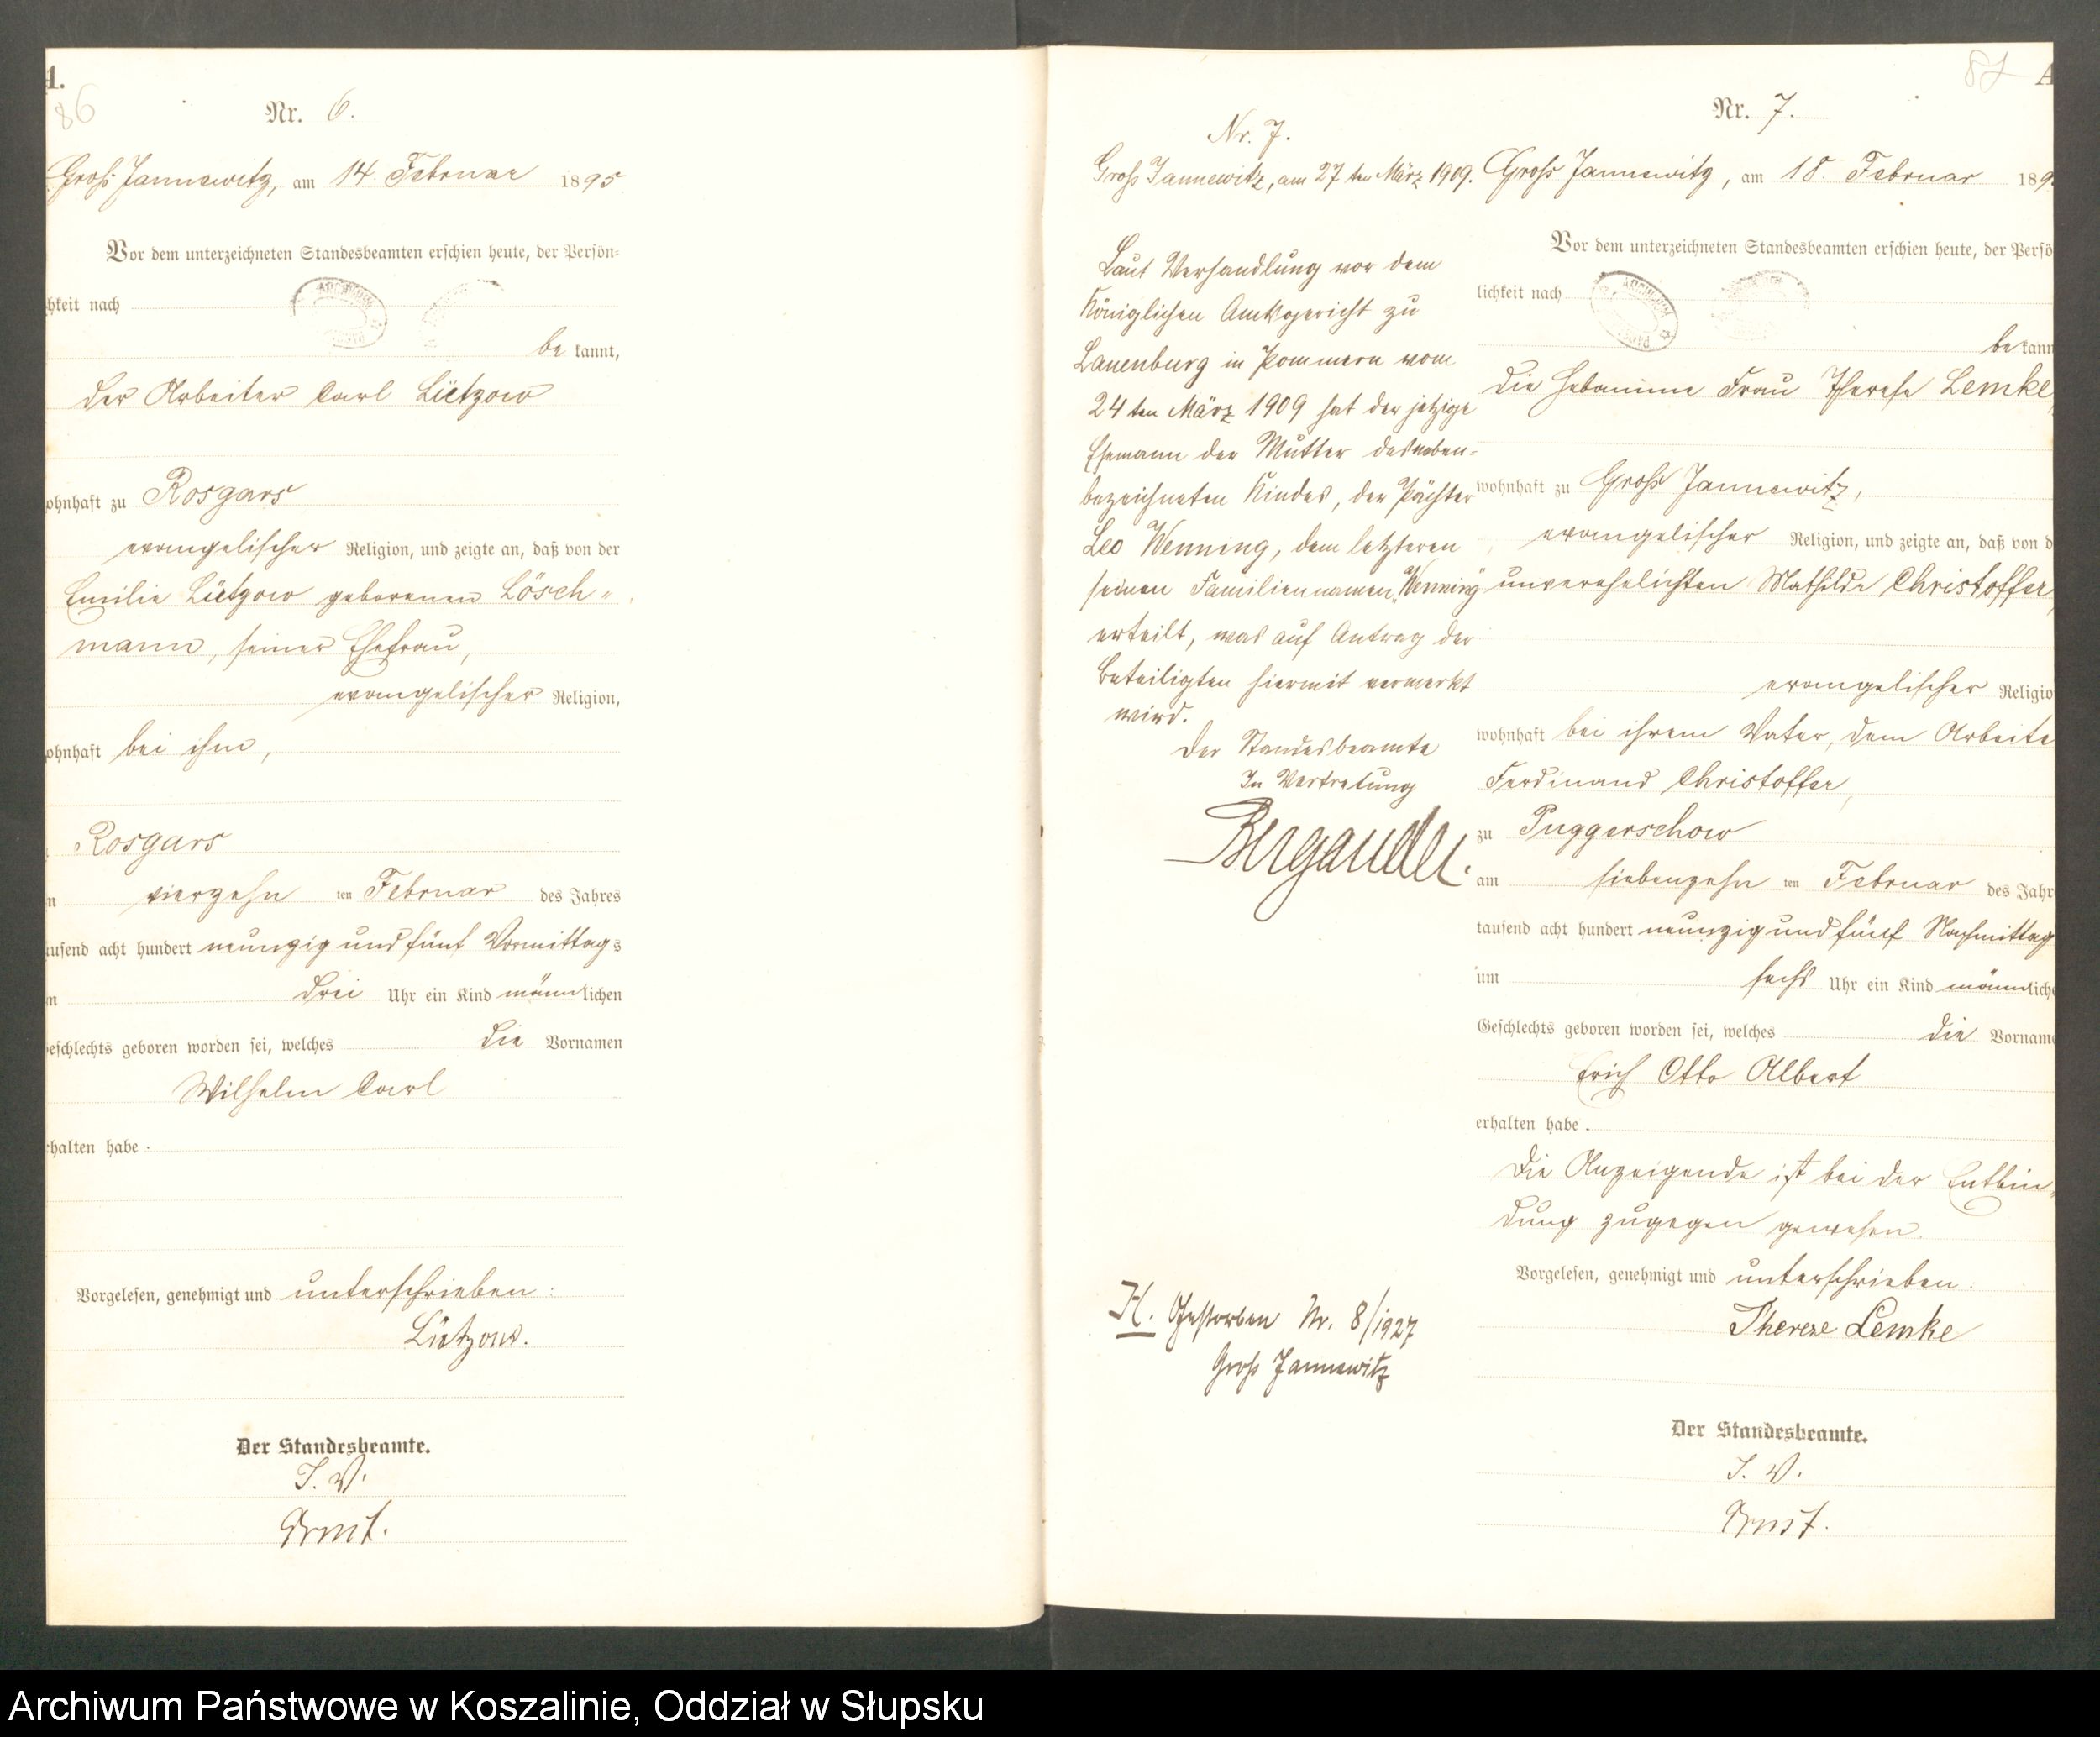 A.
86
Nr. 6.
Groß Jannewitz, am 14 Februar 1895
Vor dem unterzeichneten Standesbeamten erschien heute, der Persön-
hkeit nach
be kannt,
der Arbeiter Carl Lietzow
ohnhaft zu Rosgars
evangelischer Religion, und zeigte an, daß von der
Emilie Lietzow geborenen Lösch-
mann, seiner Ehefrau,
evangelischer Religion,
ohnhaft bei ihm,
Rosgars
n vierzehn ten Februar des Jahres
ausend acht hundert neunzig und fünf Vormittag s
m drei Uhr ein Kind männ lichen
eschlechts geboren worden sei, welches die Vornamen
Wilhelm Carl
rhalten habe.
Vorgelesen, genehmigt und unterschrieben:
Lietzow.
Der Standesbeamte.
I. V.
Ernst.
Nr. 7.
Groß Jannewitz, am 27 ten März 1909.
Laut Verhandlung vor dem
Königlichen Amtsgericht zu
Lauenburg in Pommern vom
24 ten März 1909 hat der jetzige
Ehemann der Mutter des neben-
bezeichneten Kindes, der Pächter
Leo Wenning, dem letzteren
seinen Familiennamen „Wenning“
erteilt, was auf Antrag der
Beteiligten hiermit vermerkt
wird.
Der Standesbeamte
In Vertretung
Bergander.
H. Gestorben Nr. 8/1927
Groß Jannewitz
A
Nr. 7.
Groß Jannewitz, am 18. Februar 189
Vor dem unterzeichneten Standesbeamten erschien heute, der Persö
lichkeit nach
be kann
die Hebamme Frau Therese Lemke,
wohnhaft zu Groß Jannewitz,
evangelischer Religion, und zeigte an, daß von d
unverehelichten Mathilde Christoffer,
evangelischer Religio
wohnhaft bei ihrem Vater, dem Arbeite
Ferdinand Christoffer,
zu Puggerschow
am siebenzehn ten Februar des Jahr
tausend acht hundert neunzig und fünf Nachmittag
um sechs Uhr ein Kind männ liche
Geschlechts geboren worden sei, welches die Vorname
Erich Otto Albert
erhalten habe.
Die Anzeigende ist bei der Entbin-
dung zugegen gewesen.
Vorgelesen, genehmigt und unterschrieben:
Therese Lemke
Der Standesbeamte.
I. V.
Ernst.
Archiwum Państwowe w Koszalinie, Oddział w Słupsku